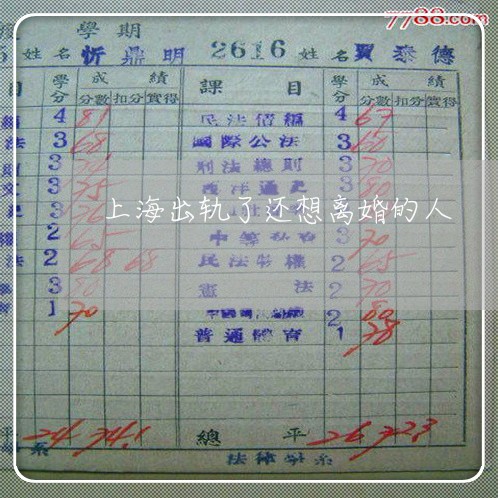 7788.com
學期
姓名 忻鼎明 2616 姓名 賈泰德
目 學分 成績 課目 學分 成績
分數 扣分 實得 分數 扣分 實得
4 81 民法債編 4 67
法 3 68 國際公法 3 60
3 刑法總則 3 70
3 75 西洋通史 3 80
3 上海出轨了还想离婚的人
權 2 65 3 70
法 2 68 68 民法物權 2 65
3 80 憲法 2 70
1 70 2 80
普通體育 1 78
平 24 74.1 總平 26 72.3
系 法律學系